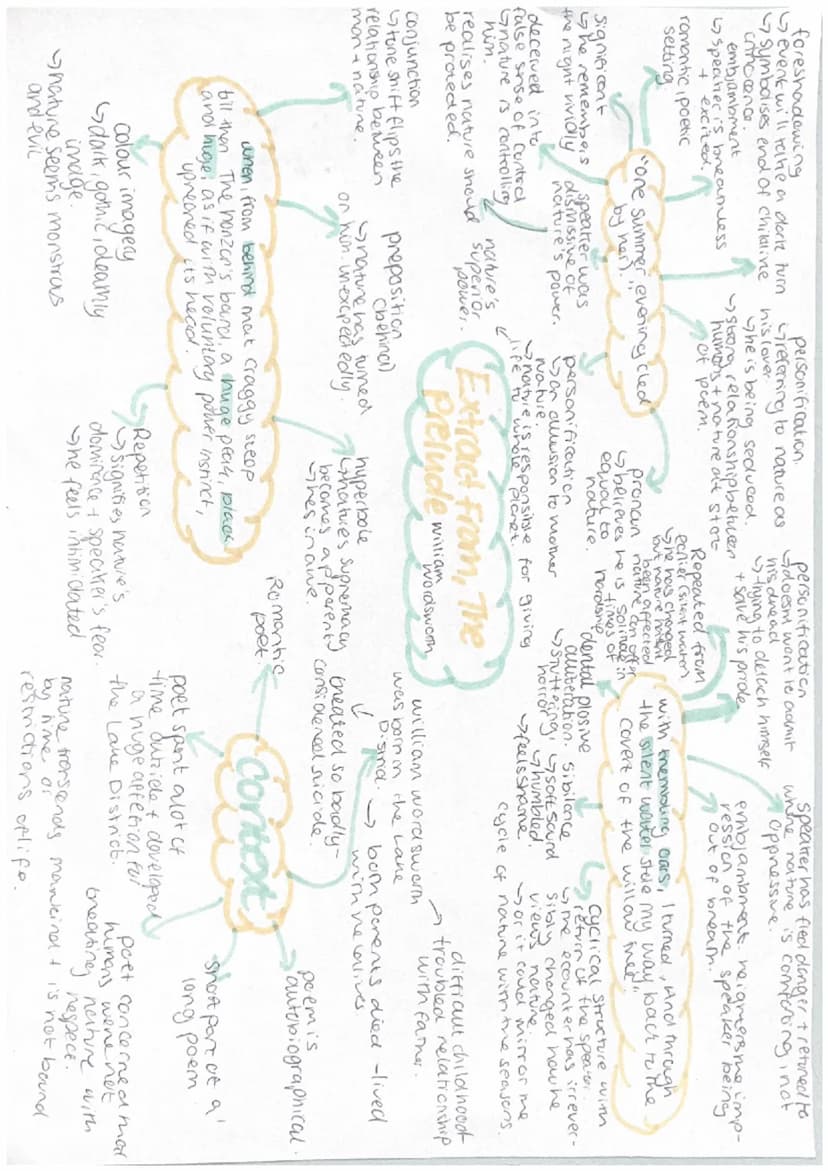 Extract from, The
Prelude William
Wordsworth
"One summer evening (led
by her)..."
foreshadowing
↳ event will take a dark turn
↳ symbolises end of childlike
enjambment
↳ speaker is breathless
+ excited.
romantic, poetic
setting
significant
↳ he remembers
the night vividly
deceived into
false sense of control
↳ nature is controlling
him.
realises nature should
be protected.
speaker was
dismissive of
nature's power.
nature's
superior
power.
personification
↳ an allusion to mother
nature.
↳ nature is responsible for giving
life to whole planet.
personification.
↳ referring to nature as
his lover.
↳ he is being seduced.
↳ strong relationship between
humans + nature at start
of poem.
pronoun
↳ believes he is
equal to
nature.
when, from behind that craggy steep
till then The horizon's bound, a huge peak, black
and huge, as if with voluntary power instinct,
upreared its head.
conjunction
↳ tone shift flips the
relationship between
man + nature.
preposition
(behind)
↳ nature has turned
on him unexpectedly.
hyperbole
↳ nature's supremacy
becomes apparent
↳ he's in awe.
colour imagery
↳ dark, gothic,
image.
↳ nature seems monstrous
and evil
Repetition
↳ signifies nature's
dominance + speaker's fear.
↳ he feels intimidated
with trembling oars, I turned, And through
the silent water stole my way back to the
covert of the willow tree"
Repeated from
earlier silent water
↳ he has changed
but nature hasn't
been affected
nature can offer
solitude in
times of
hardship
personification
↳ doesn't want to admit
his dread
↳ trying to detach himself
+ save his pride
speaker has fled danger + returned to
where nature is comforting, not
oppressive.
enjambment. heightens the imp-
ression of the speaker being
out of breath.
dental plosive
alliteration.
↳ stuttering
horror
sibilance
↳ soft sound
↳ humbled.
↳ feels shame.
cyclical structure with
return of the speaker.
↳ the encounter has irrever-
sibly changed how he
views nature
↳ or it could mirror the
cycle of nature with the seasons.
context
Romantic
poet.
poet spent a lot of
time outside + developed
a huge affection for
the Lake District.
nature transcends mankind + is not bound
by time or
restrictions of life.
poet concerned that
humans were not
treating nature with
respect.
short part of a
long poem
poem is
autobiographical.
William Wordsworth
was born in the Lake
District.
→ both parents died - lived
with relatives.
treated so badly -
considered suicide.
→ difficult childhood
troubled relationship
with father.